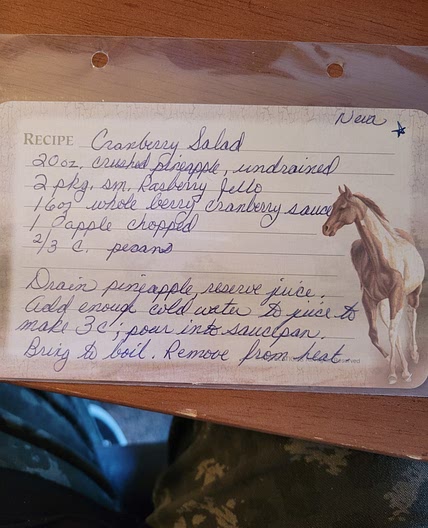 Neva
RECIPE Cranberry Salad
20 oz. crushed pineapple, undrained
2 pkg. sm. Rasberry Jello
16oz whole berry cranberry sauce
1 apple chopped
2/3 c. pecans
Drain pineapple, reserve juice.
Add enough cold water to juice to
make 3c; pour into saucepan.
Bring to boil. Remove from heat.